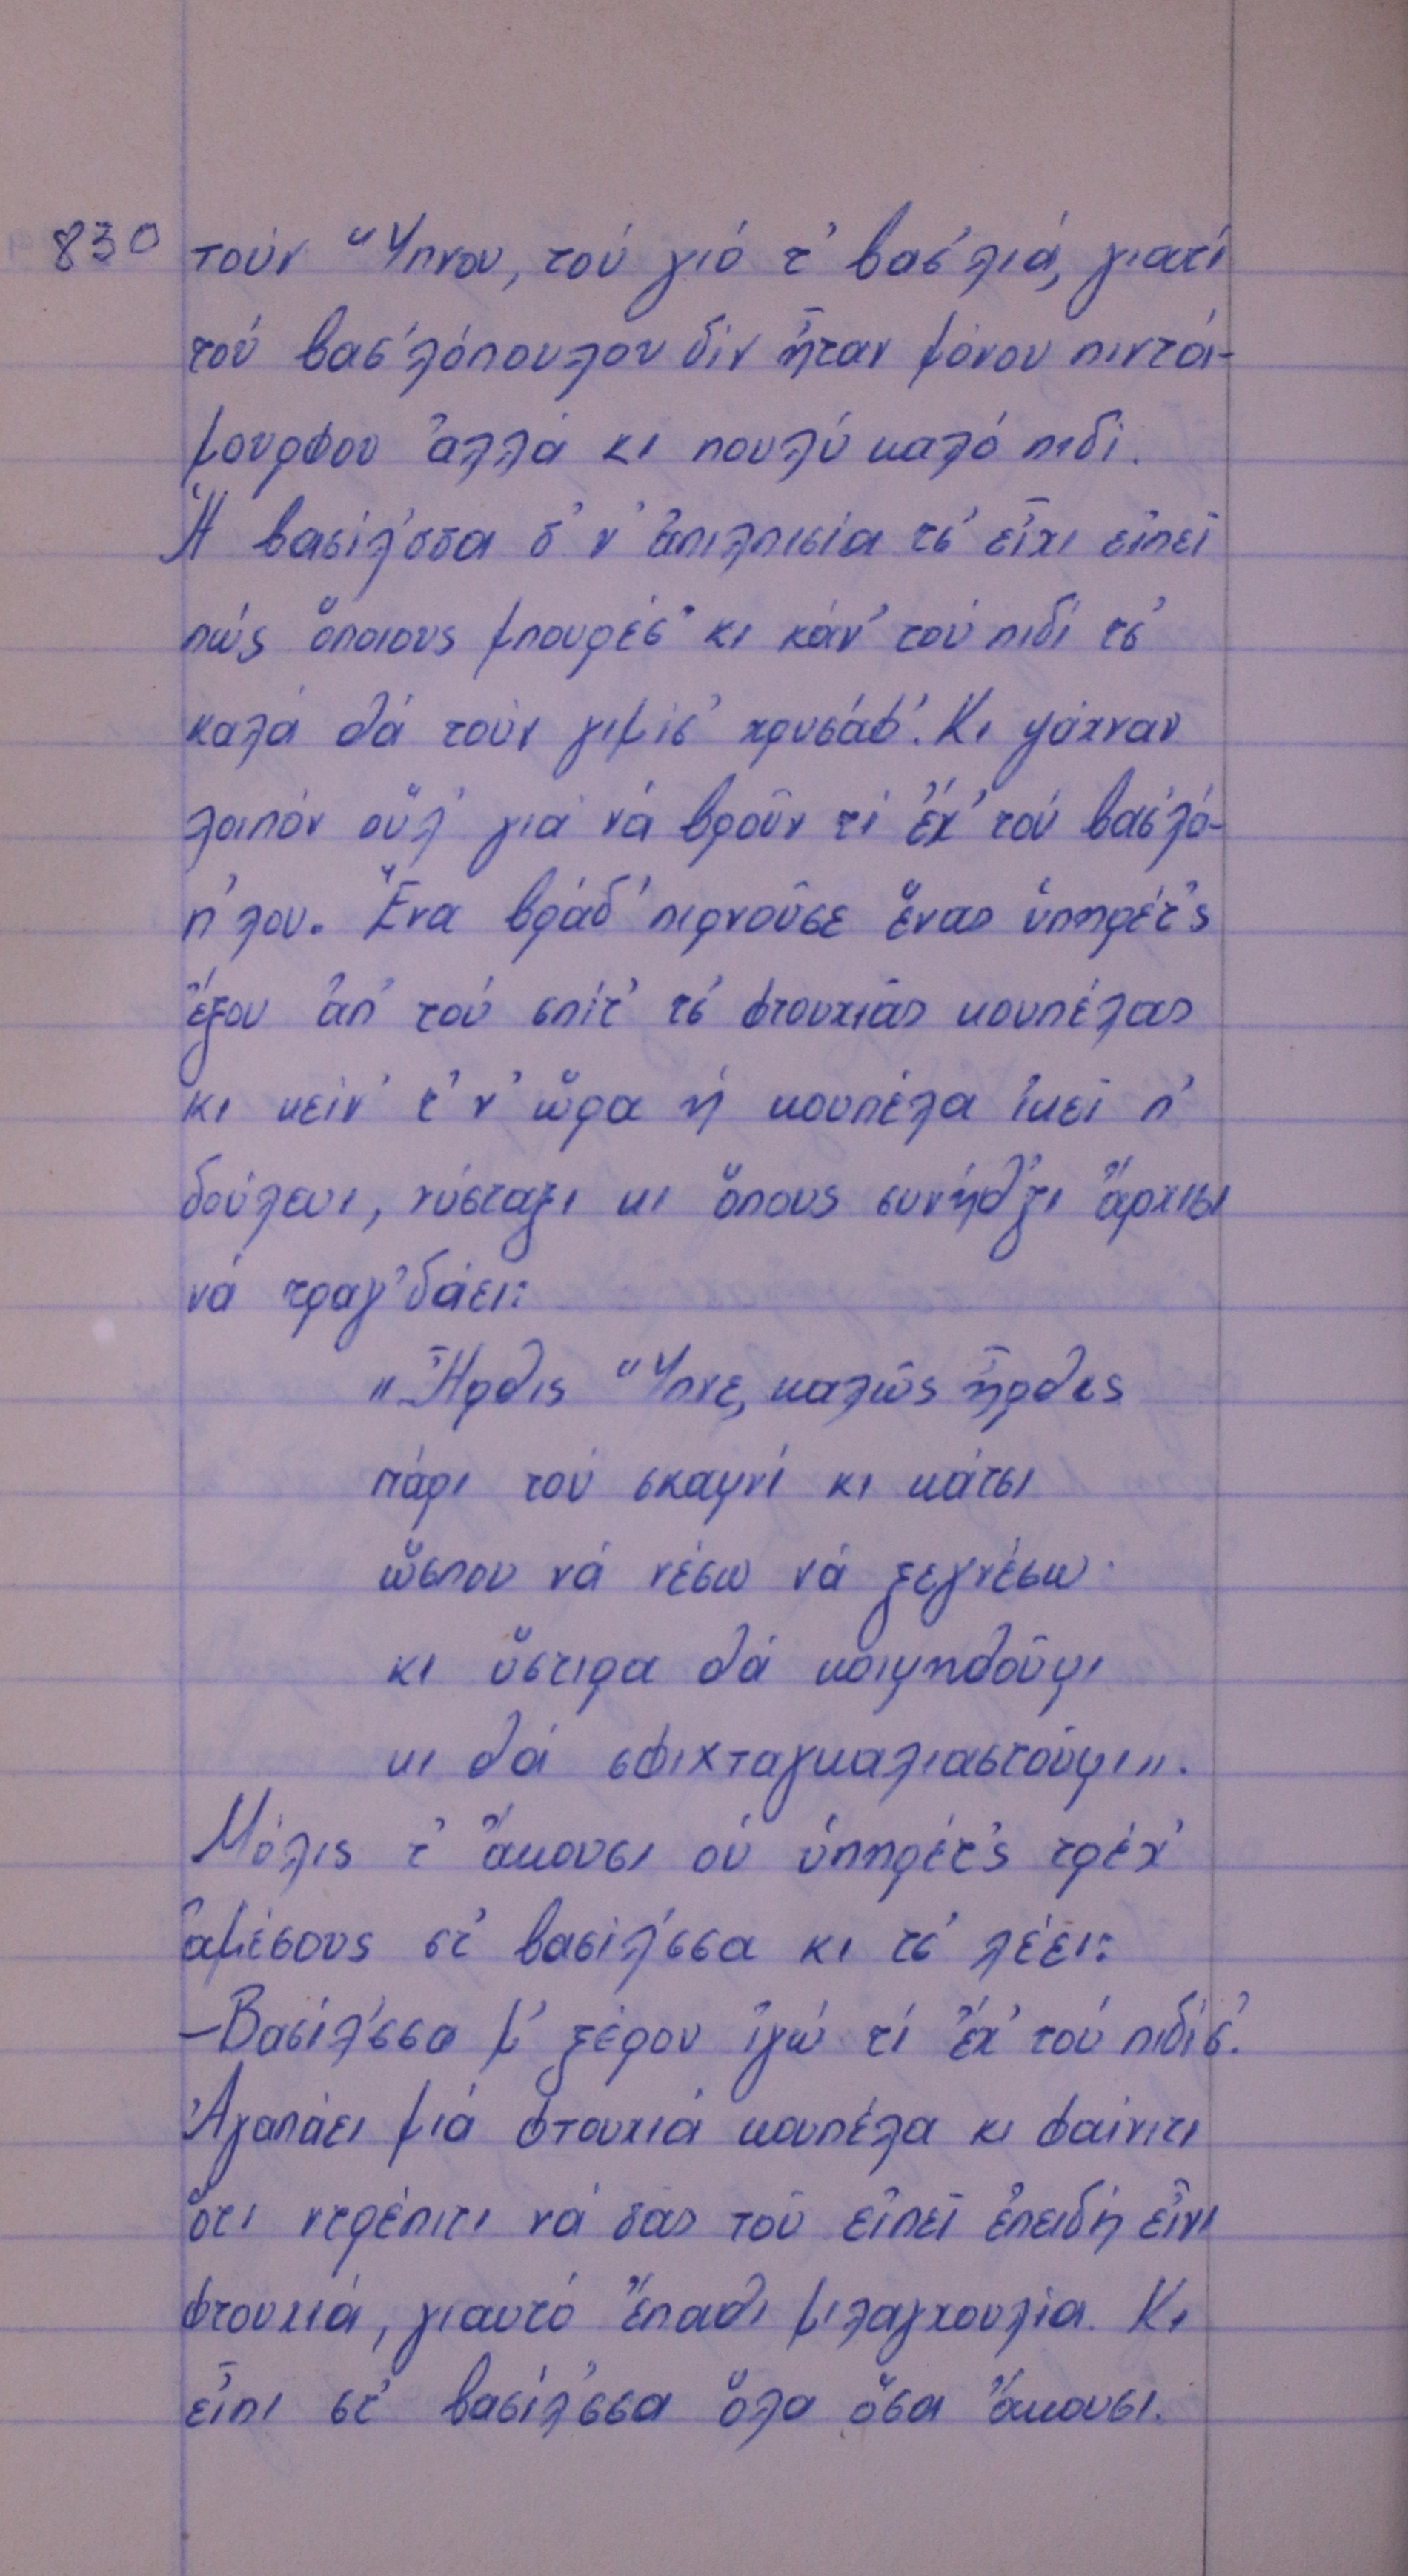 830 τούν Ὕπνου, τού γιό τ' βασ'λιά, γιατί
τού βασ'λόπουλου δίν ἦταν μόνου πιντά-
μουρφου ἀλλά κι πουλύ καλό πιδί.
Ἡ βασίλ'σσα σ' ν' ἀπιλπισία τσ' εἶχι εἰπεῖ
πώς ὅποιους μπουρέσ' κι κάν' τού πιδί τσ'
καλά θά τούν γιμίσ' χρυσάφ'. Κι ψάχναν
λοιπόν οὕλ' γιά νά βροῦν τί ἔχ' τού βασ'λό-
π'λου. Ἕνα βράδ' πιρνοῦσε ἕνας ὑπηρέτ'ς
ἔξου ἀπ' τού σπίτ' τσ' φτουχιᾶς κουπέλας
κι κείν' τ' ν' ὥρα ἡ κουπέλα ἰκεῖ π'
δούλευι, νύσταξι κι ὅπους συνήθ'ζι ἄρχισι
νά τραγ'δάει:
"Ἦρθις Ὕπνε, καλῶς ἦρθες
πάρι τού σκαμνί κι κάτσι
ὥσπου νά νέσω νά ξεγνέσω
κι ὕστιρα θά κοιμηθοῦμι
κι θά σφιχταγκαλιαστούμι".
Μόλις τ' ἄκουσι οὑ ὑπηρέτ'ς τρέχ'
ἀμέσους στ' βασίλ'σσα κι τσ' λέει:
—Βασίλ'σσα μ' ξέρου ἰγώ τί ἔχ' τού πιδίσ'.
Ἀγαπάει μιά φτουχιά κουπέλα κι φαίνιτι
ὅτι ντρέπιτι νά σας τοῦ εἰπεῖ ἐπειδή εἶνι
φτουχιά, γιαυτό ἔπαθι μιλαγχουλία. Κι
εἶπι στ' βασίλ'σσα ὅλα ὅσα ἄκουσι.